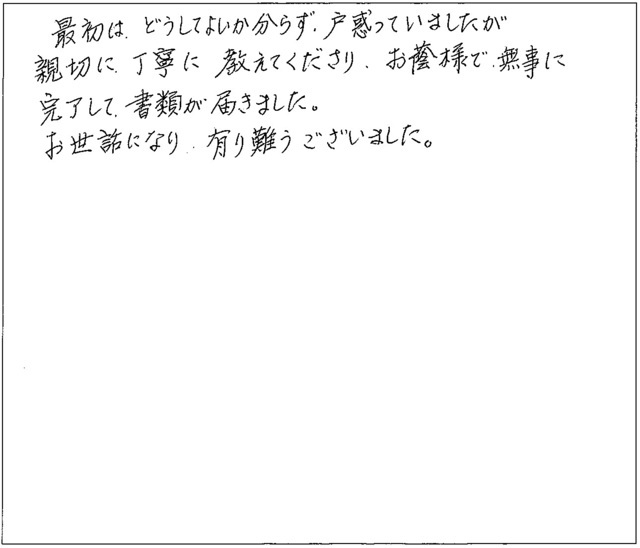 最初は、どうしてよいか分らず、戸惑っていましたが
親切に、丁寧に 教えてくださり、お蔭様で、無事に
完了して、書類が届きました。
お世話になり、有り難うございました。